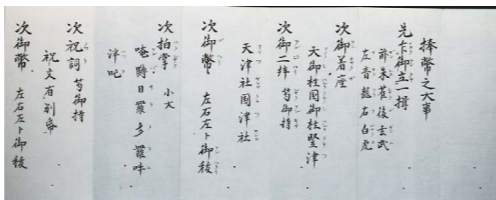 捧幣之大事
先太御立一揖
前朱雀後玄武
左青龍右白虎
次御着座
天御柱国御柱堅津
次御二拝 笏御持
天津社国津社
次御幣 左右左ト御祓
次拍掌 小大
唵 日羅 羅吽
泮吒
次祝詞 笏御持
祝文有別帋
次御幣 左右左ト御祓